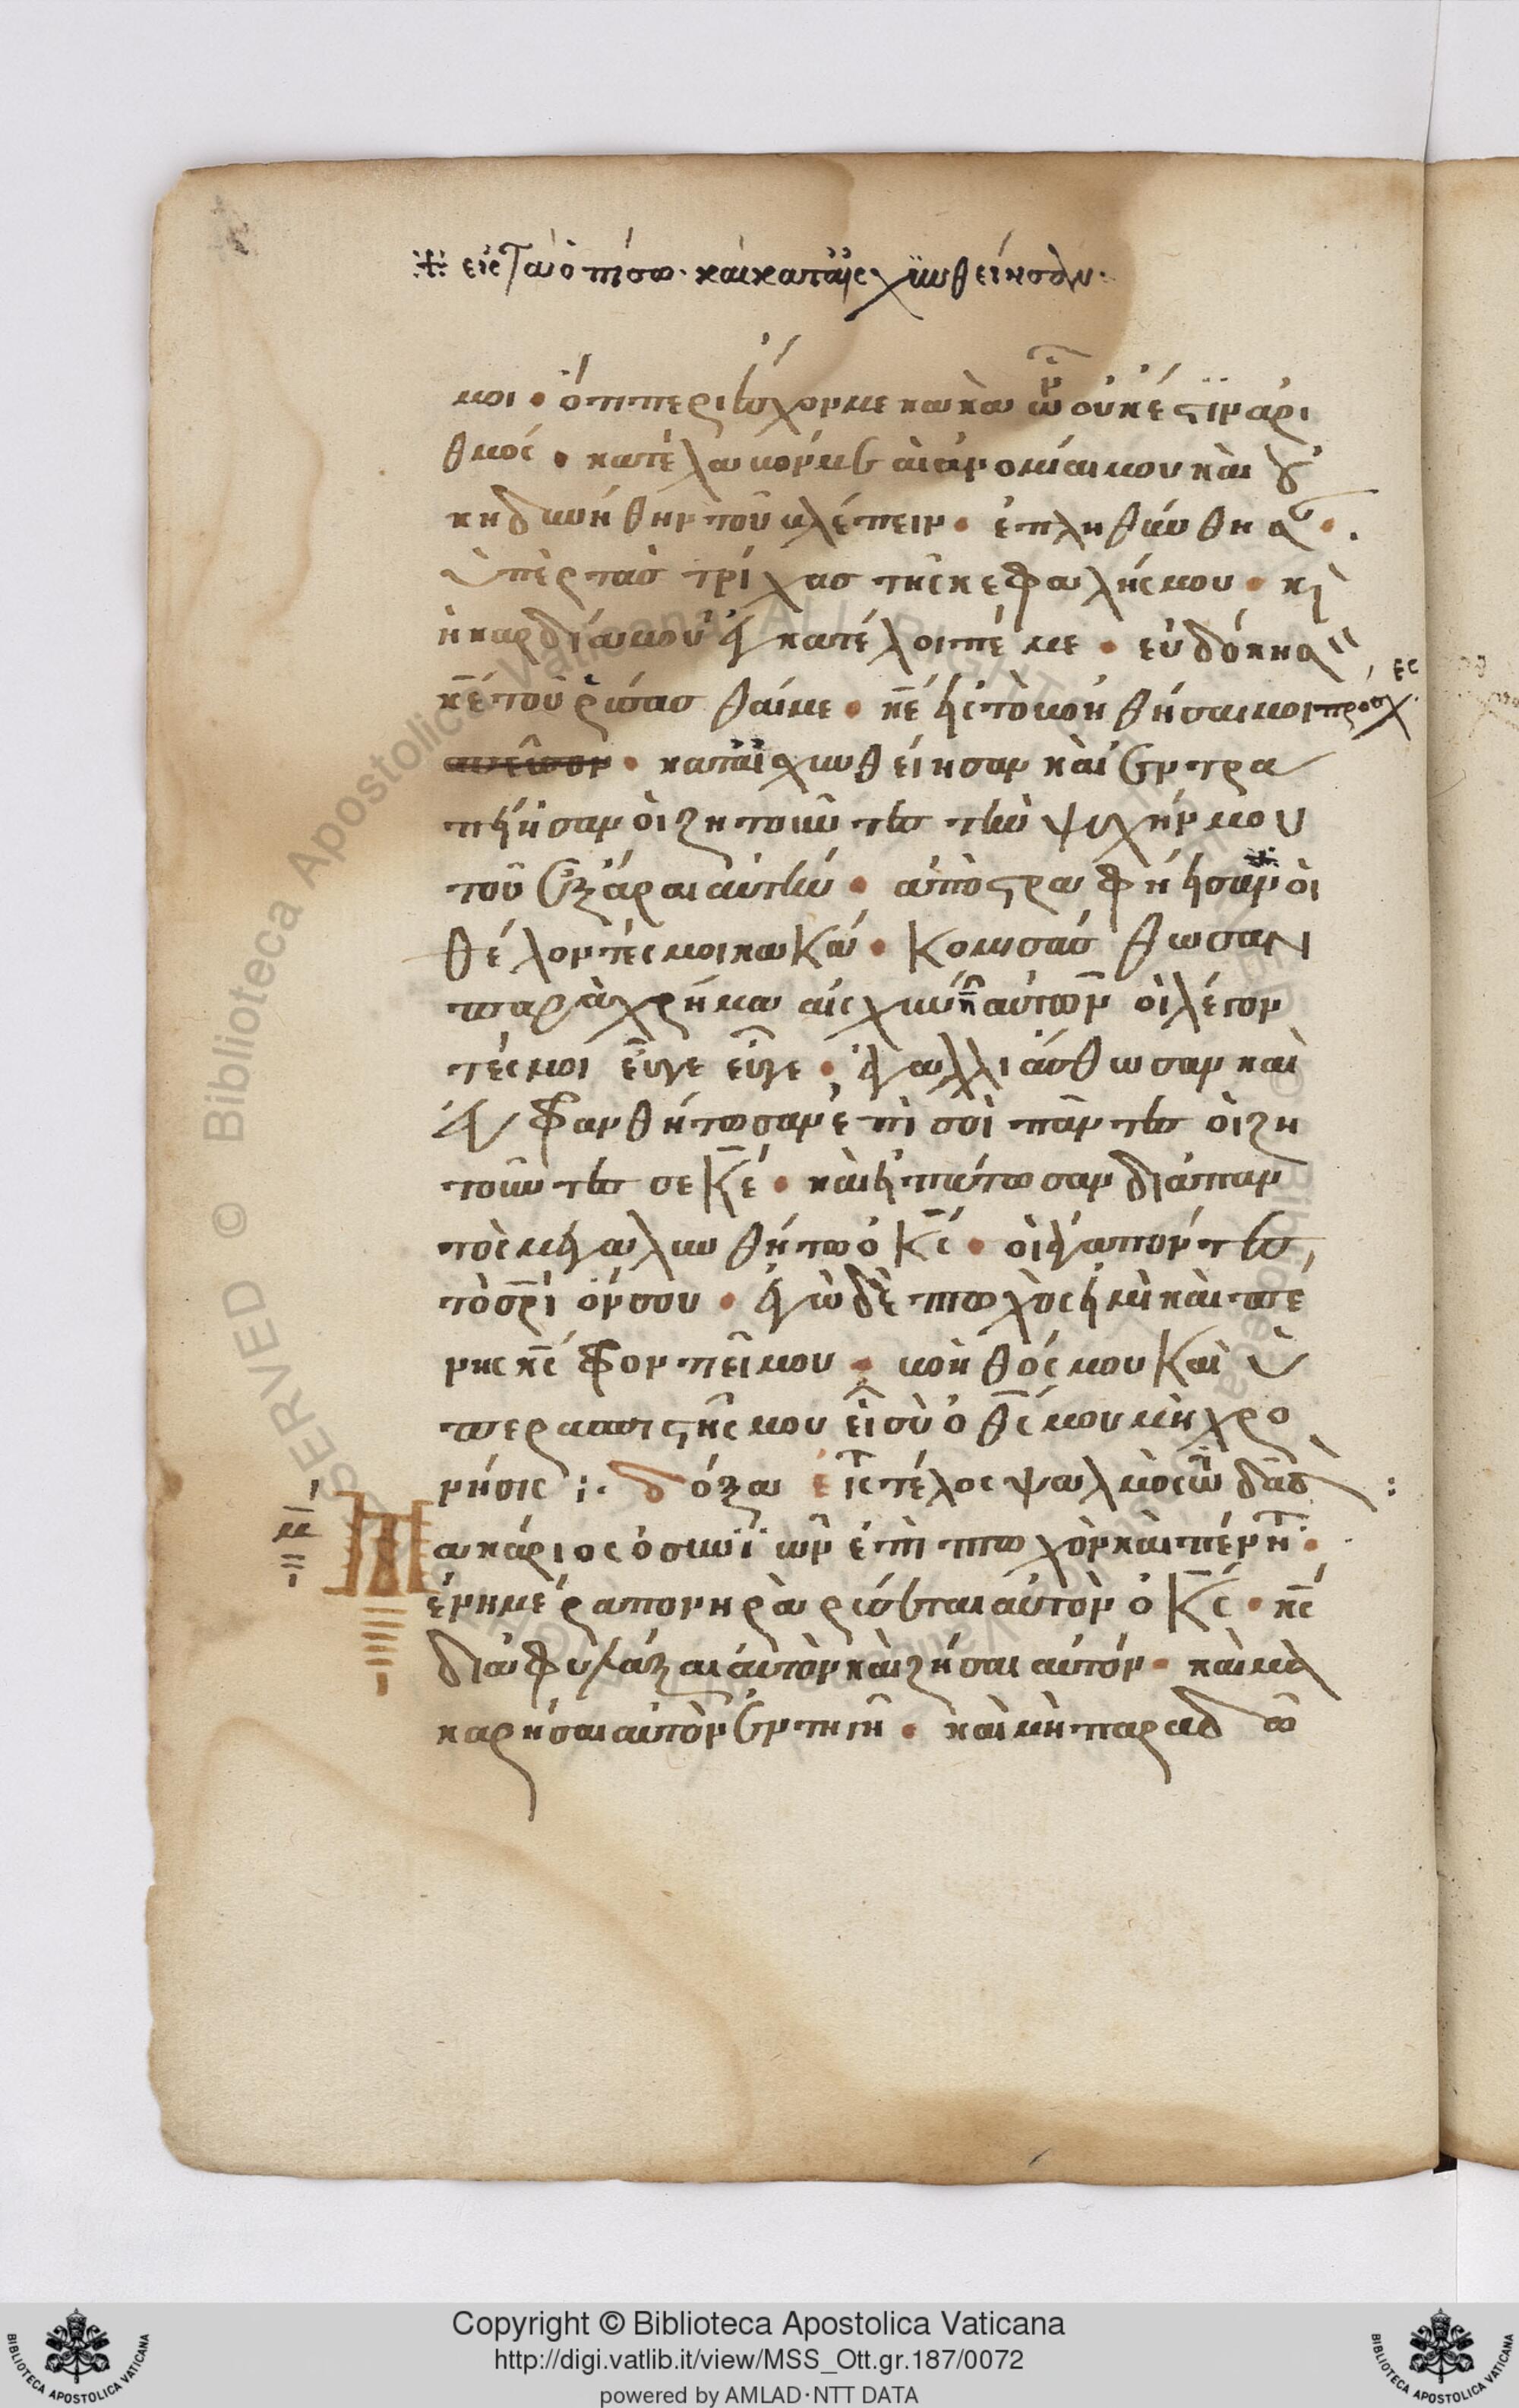 ※ εἰς τὰ ὀπίσω· καὶ καταισχυνθείησαν·
μοι · ὅτι περιέσχον με κακὰ ὧν οὐκ ἔστιν ἀρι
θμός · κατέλαβόν με αἱ ἀνομίαι μου καὶ οὐ
κ ἠδυνήθην τοῦ βλέπειν · ἐπληθύνθησ
ὑπὲρ τὰς τρίχας τῆς κεφαλῆς μου · κὶ
ἡ καρδία μου ἐγκατέλοιπέ με · εὐδόκησ
κε τοῦ ῥύσασθαί με · κε εἰς τὸ βοηθῆσαί μοι προσχες
· καταισχυνθείησαν καὶ ἐντρα
πείησαν οἱ ζητοῦντες τὴν ψυχήν μου
τοῦ ἐξάραι αὐτήν · ἀποστραφήησαν ※ οἱ
θέλοντές μοι κακά · Κομισάσθωσαν
παραχρῆμα αἰσχύνην αὐτῶν οἱ λέγον
τές μοι εὖγε εὖγε · ἀγαλλιάσθωσαν καὶ
εὐφρανθήτωσαν ἐπὶ σοὶ πάντες οἱ ζη
τοῦντες σε Κε · καὶ εἰπάτωσαν διαπαν
τὸς μεγαλυνθήτω ὁ Κς · οἱ ἀγαπῶντες
τὸ σρι όν σου · ἐγὼ δὲ πτωχὸς εἰμὶ καὶ πέ
νης κς φροντιεῖ μου · βοηθός μου Καὶ ὑ
περασπιστής μου εἶ σὺ ὁ θς μου μὴ χρο
νήσις :· δόξα εἰς τέλος ψαλμὸς τῶ δαδ :
μ Μακάριος ὁ συνιῶν ἐπὶ πτωχὸν καὶ πένητ ·
ἐν ἡμέρα πονηρὰ ῥύσεται αὐτὸν ὁ Κς · κς
διαφυλάξαι αὐτὸν καὶ ζήσαι αὐτόν · καὶ μα
καρήσαι αὐτὸν ἐν τῆ γῆ · καὶ μὴ παραδῶ
SERVED © Biblioteca Apostolica Vaticana. ALL RIGHTS
BIBLIOTECA APOSTOLICA VATICANA
Copyright © Biblioteca Apostolica Vaticana
http://digi.vatlib.it/view/MSS_Ott.gr.187/0072
powered by AMLAD·NTT DATA
BIBLIOTECA APOSTOLICA VATICANA